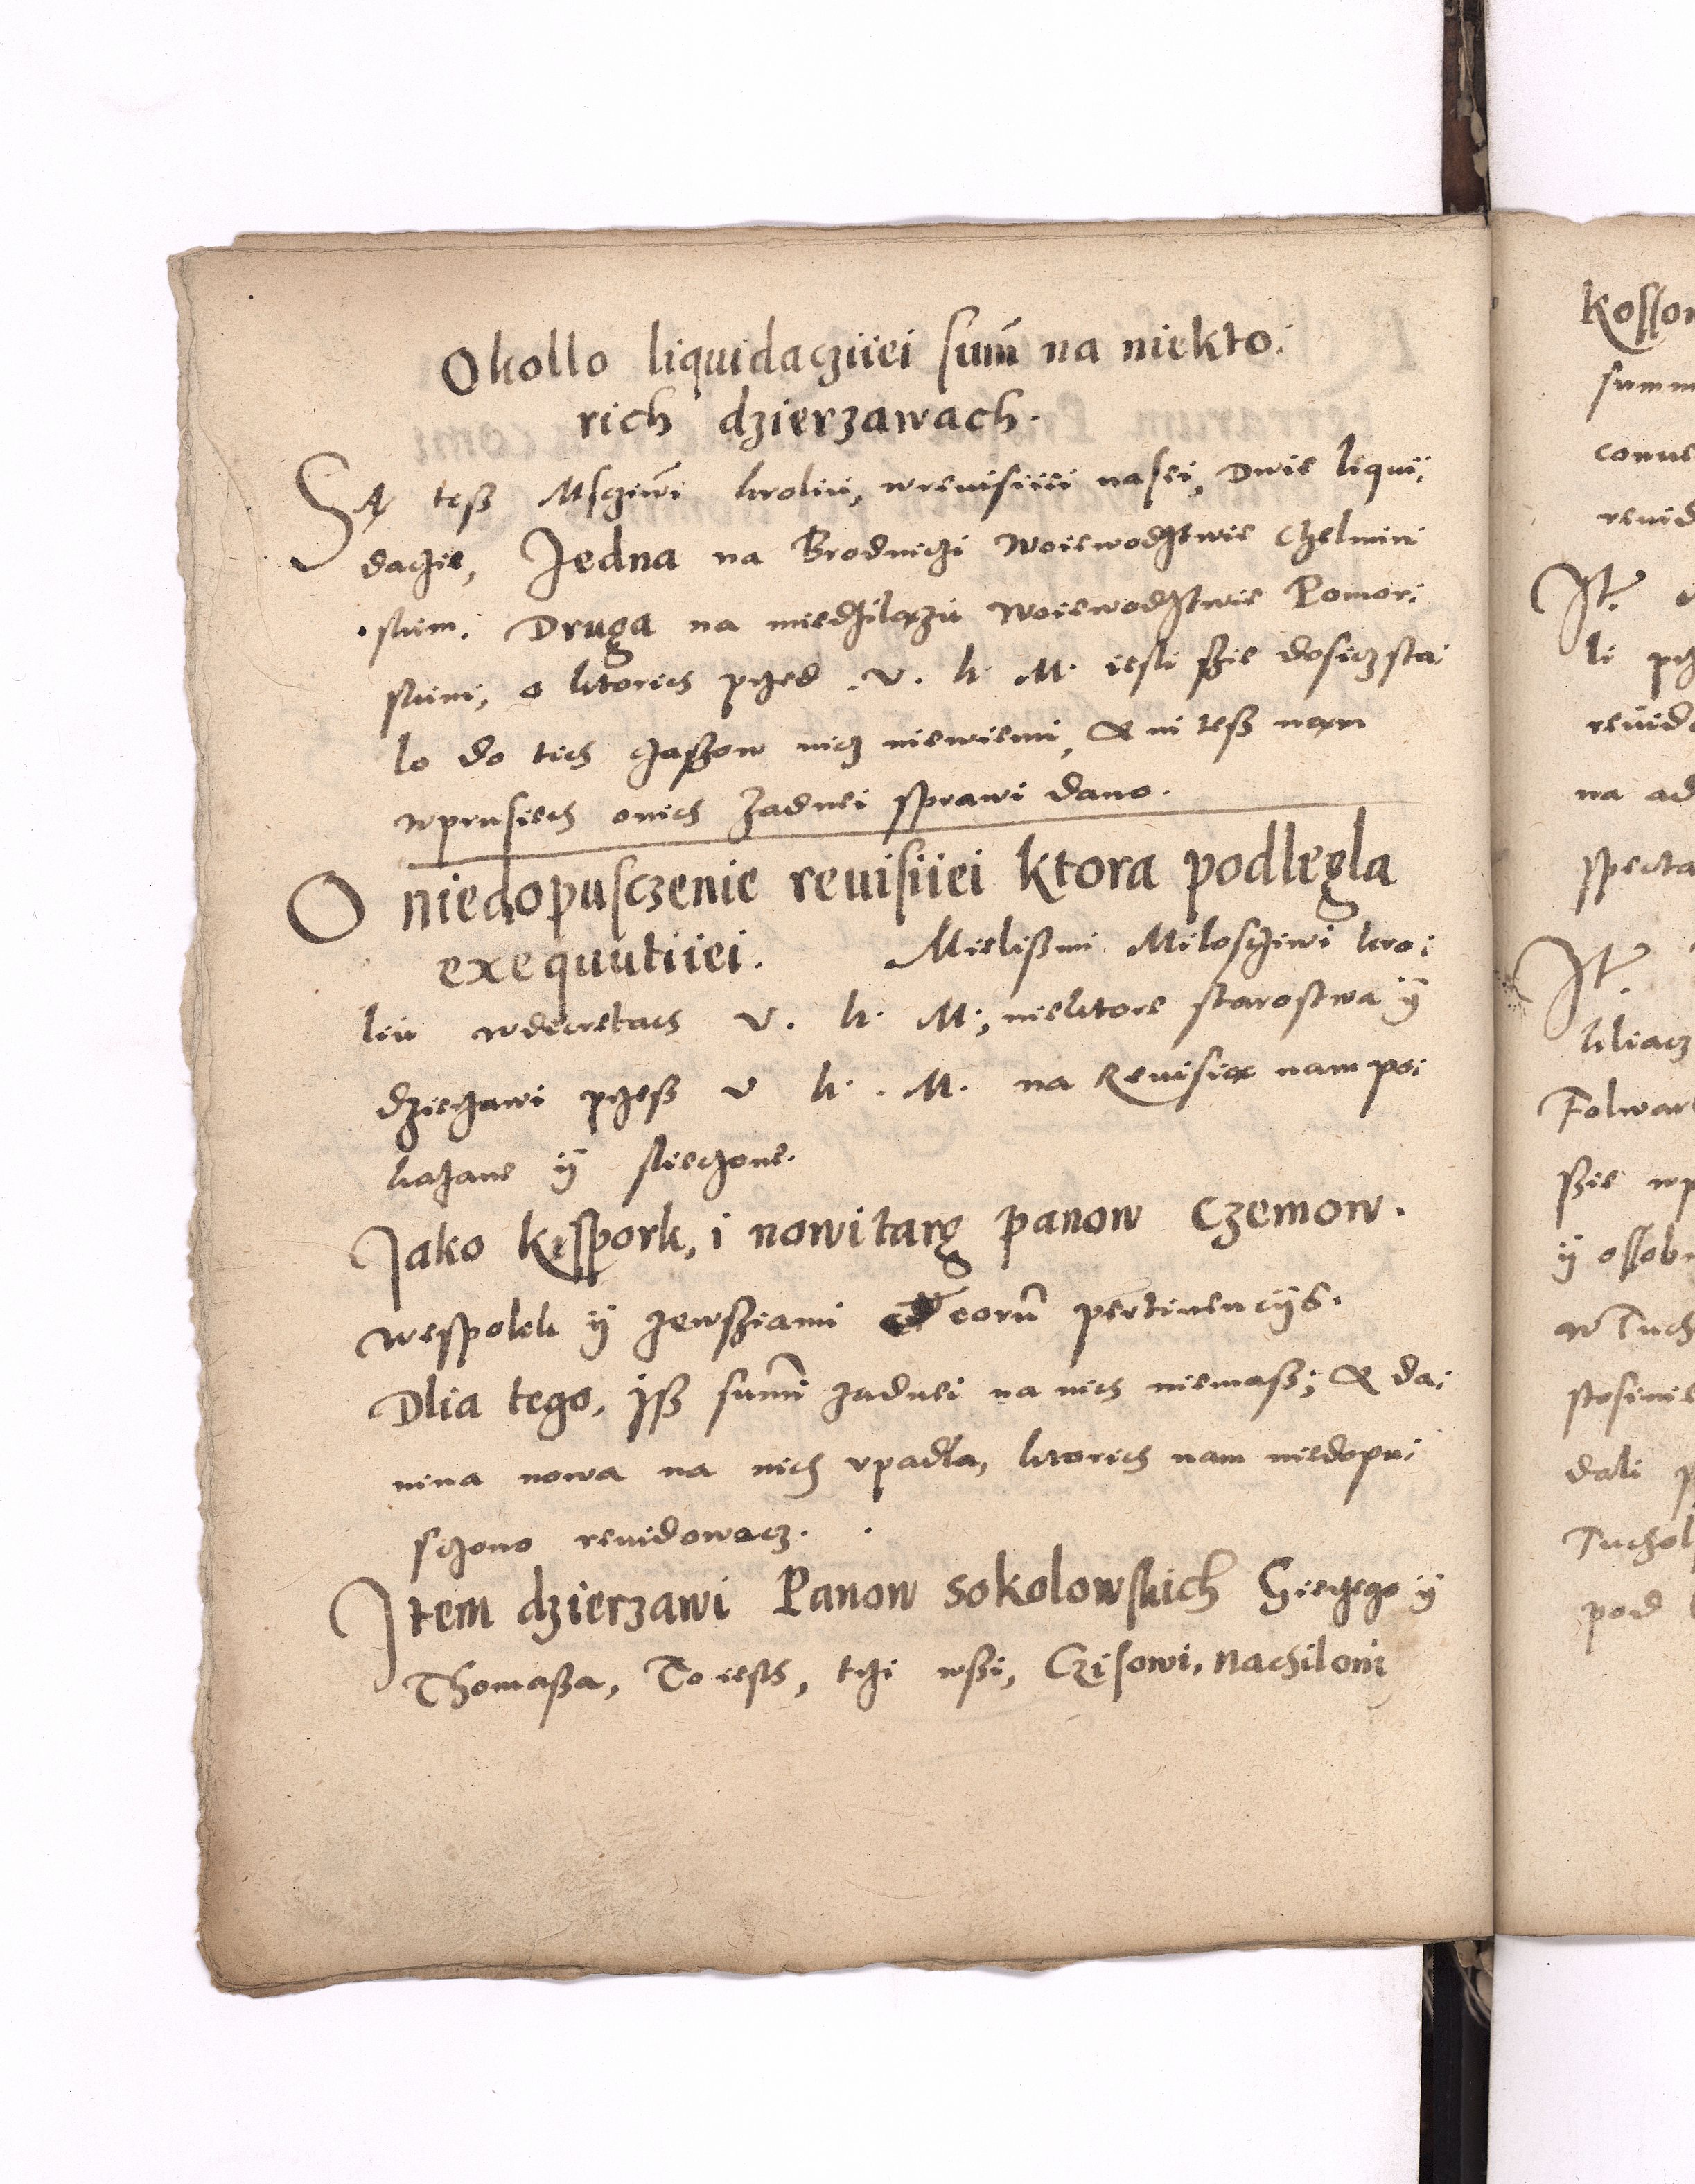 Okollo liquidacziiei sum̃ na niekto:
rich dzierzawach.
SĄ tesz Mscziwi kroliu, wreuisiiii nasei, Dwie liqui:
daczie, Jedna na Brodniczi woiewodztwie Czelmin
skim. Druga na miedzilęzu woiewodztwie Pomor:
skim, o ktorich przed V. k. M. iesli szie dosicz sta:
lo do tich czaszow nicz niewiemi, A ni tesz nam
wprusiech onich zadnei sprawi dano.
O niedopusczenie reuisiiei ktora podlegla
exequutiiei. Mielismi Milosciwi kro:
liu wdecretach V. k. M., niektore starostwa ÿ
dzierzawi przesz V k. M. na Reuisią nam po:
kazane ÿ zlieczone.
Jako kiszpork, i nowitarg panow Czemow.
wespolek ÿ zewsziami eorũ pertinencijs.
Dlia tego, Jsz summi zadnei na nich niemasz; A da:
nina nowa na nich vpadła, ktorich nam niedopu:
sczono reuidowacz.
Jtem dzierzawi Panow sokolowskich Gierzego ÿ
Thomasza, To iesth, trzi wszi, Czisowi, nachiloni
kossow
summ
conue
reuid
Jt.
li prz
reuido
na ad
specta
Jt.
kliacz
Folwark
szie wp
ÿ ossobn
w Tuch
stosinie
dali p
Tuchol
pod